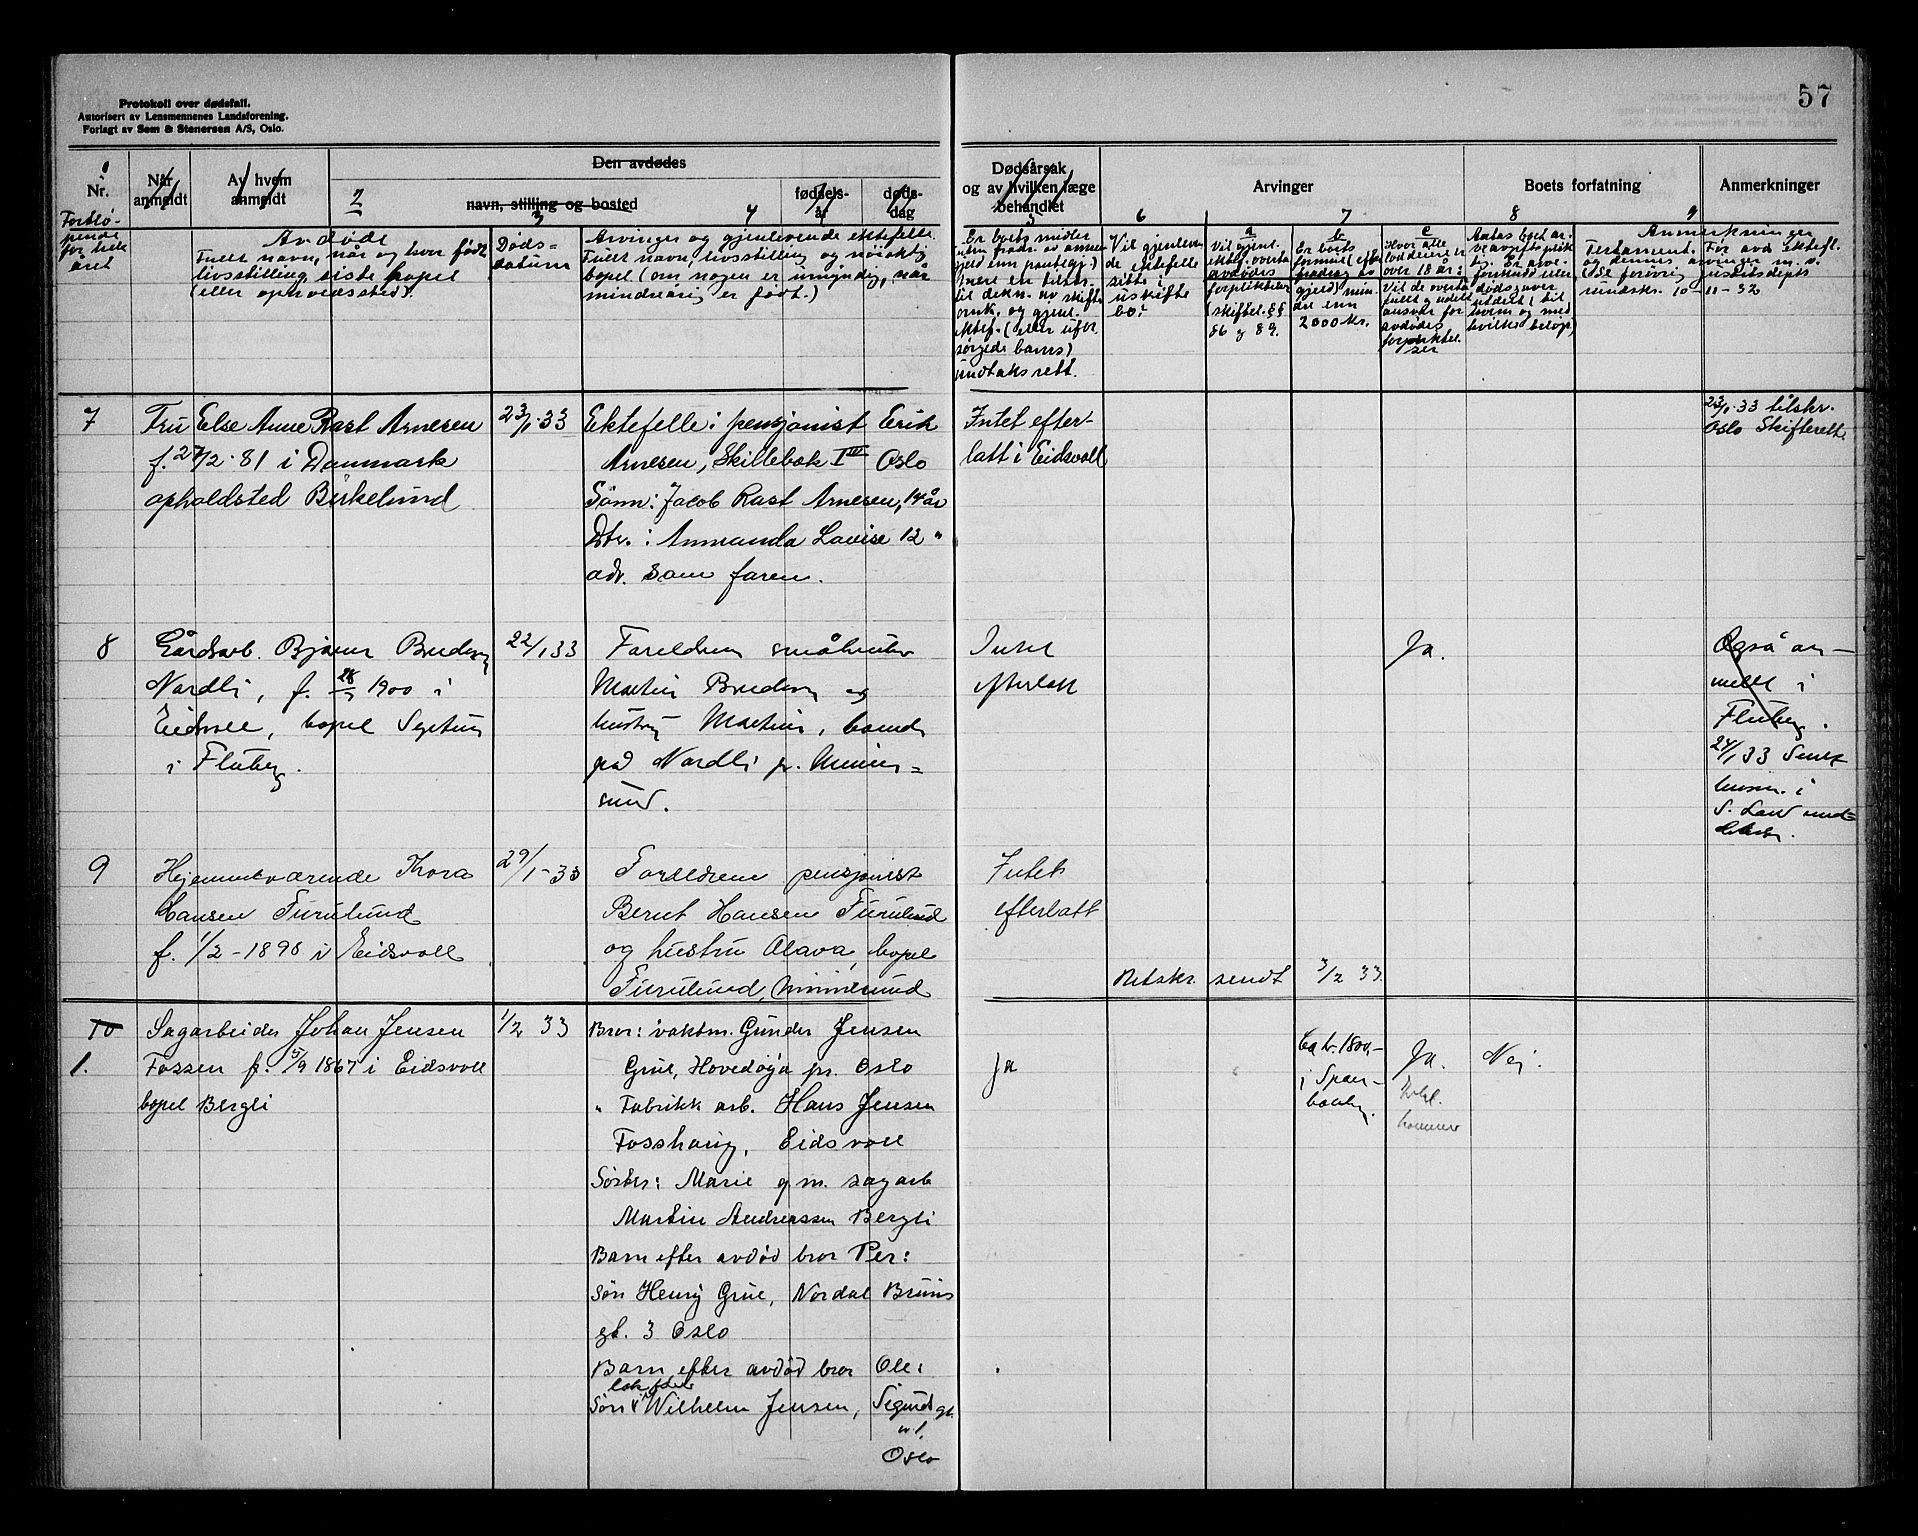 57
Protokoll over dødsfall.
Autorisert av Lensmennenes Landsforening.
Forlagt av Sem & Stenersen A/S, Oslo.
Nr.
Når anmeldt
Av hvem anmeldt
Den avdødes
navn, stilling og bosted
fødsels-
år
døds-
dag
Dødsårsak
og av hvilken læge
behandlet
Arvinger
Boets forfatning
Anmerkninger
1
2
3
4
5
6
7
8
9
Fortlø-
pende
for hele
året
Avdøde
Fullt navn, når og hvor født
livsstilling, siste bopel
(eller opholdssted).
Døds-
datum
Arvinger og gjenlevende ektefelle
Fullt navn, livsstilling og nøiaktig
bopel (om nogen er umyndig, når
mindreårig er født.)
undtaksrett.
Vil gjenleven
de ektefelle
sitte i
uskifte
bo?
a
Vil gjenl.
ektef. overta
avdødes
forpliktelser
(skiftel. §§
86 og 89.
b
Er boets
formue (efter
fradrag av
gjeld) min-
dre enn
2000 kr.
c
Hvor alle
loddeiere er
over 18 år:
Vil de overta
fullt og udelt
ansvar for
avdødes
forpliktel-
ser
Anmerkninger
rundskr. 10-11-32
7
Fru Else Anne Rast Arnesen
f. 27/2-81 i Danmark
opholdsted Birkelund
23/1-33
Ektefelle: pensjonist Erik
Arnesen, Skillebæk III Oslo
Sønn: Jacob Rast Arnesen, 14 år
Dtr.: Ammanda Lovise 12 "
adr. som faren.
Intet efter-
latt i Eidsvoll
23/1-33 tilskr.
Oslo Skifterett.
8
Gårdsarb. Bjarne Bredesen
Nordli, f. 1900 i
Eidsvoll, bopel
i Fluberg.
22/1 33
Foreldrene småbruker
Martin Bredesen og
hustru Martine, boende
på Nordli pr. Minne-
sund.
Intet
efterlatt
Ja.
Også an-
meldt i
Fluberg.
24/1 33
i
S. Land
9
Hjemmeværende Thora
Hansen Furulund
f. 1/2-1898 i Eidsvoll
29/1-33
Foreldrene pensjonist
Bernt Hansen Furulund
og hustru Olava, bopel
Furulund, Minnesund
Intet
efterlatt
sendt 3/2 33.
10
1.
Sagarbeider Johan Jensen
Fossen f. 5/9 1867 i Eidsvoll
bopel Bergli
1/2 33
Bror: vaktm. Gunder Jensen
Grue, Hovedøya pr. Oslo
" Fabrikk arb. Hans Jensen
Fosshaug, Eidsvoll
Søster: Marie g.m. sagarb
Martin Andreassen Bergli
Barn efter avdød bror Per:
Søn Henry Grue, Nordal Bruns
gt. 3 Oslo
Barn efter avdød bror Ole:
Søn Wilhelm Jensen, Sigurds gt.
Oslo
Ja
Ca kr. 1800,-
i Spare-
banken.
Ja.
Nei.